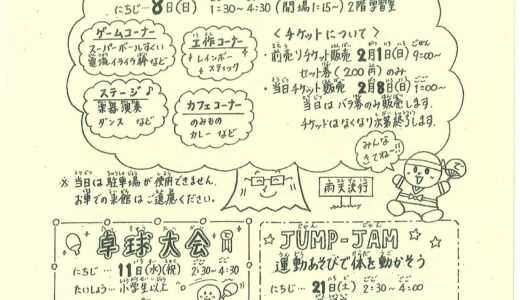 にちじ…8日(日) 1:30~4:30 (開場1:15~) 2階 学習室
ゲームコーナー
スーパーボールすくい
電流イライラ棒など
工作コーナー
レインボー
スティック
ステージ♪
楽器演奏
ダンス など
カフェコーナー
のみもの
カレー など
<チケットについて>
・前売りチケット販売 2月1日(日) 9:00~
セット券(200円)のみ
・当日チケット販売 2月8日(日) 1:00~
当日はバラ券のみ販売します。
チケットはなくなり次第終了します。
みんな
きてね~!!
※当日は駐車場が使用できません。
お車での来館はご遠慮ください。
雨天決行
卓球大会
にちじ… 11日(水)(祝) 2:30~4:00
たいしょう…小学生以上
JUMP-JAM
運動あそびで体を動かそう
にちじ… 21日(土) 2:30~4:30